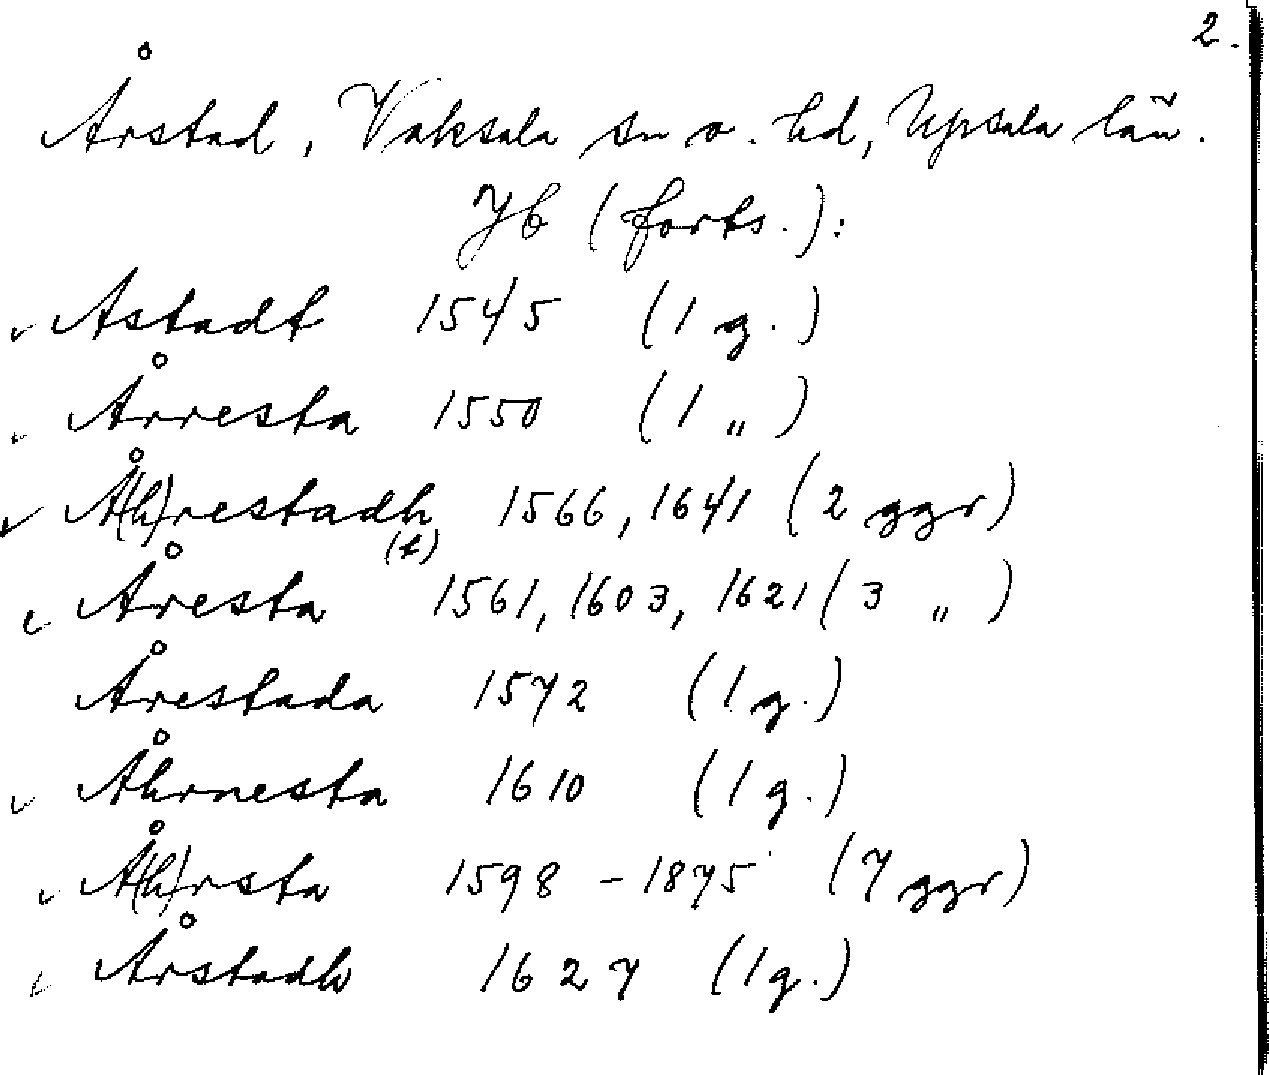 2.
Årstad, Vaksala sn o. hd, Upsala län.
Jb (forts.):
Astadt 1545 (1 g.)
Årresta 1550 (1 „ )
Å(h)restadh 1566, 1641 (2 ggr)
(t)
Åresta 1561, 1603, 1621 (3 „ )
Årestada 1572 (1 g.)
Åhrnesta 1610 (1 g.)
Å(h)rsta 1598 - 1875 (7 ggr)
Årstadh 1627 (1g.)